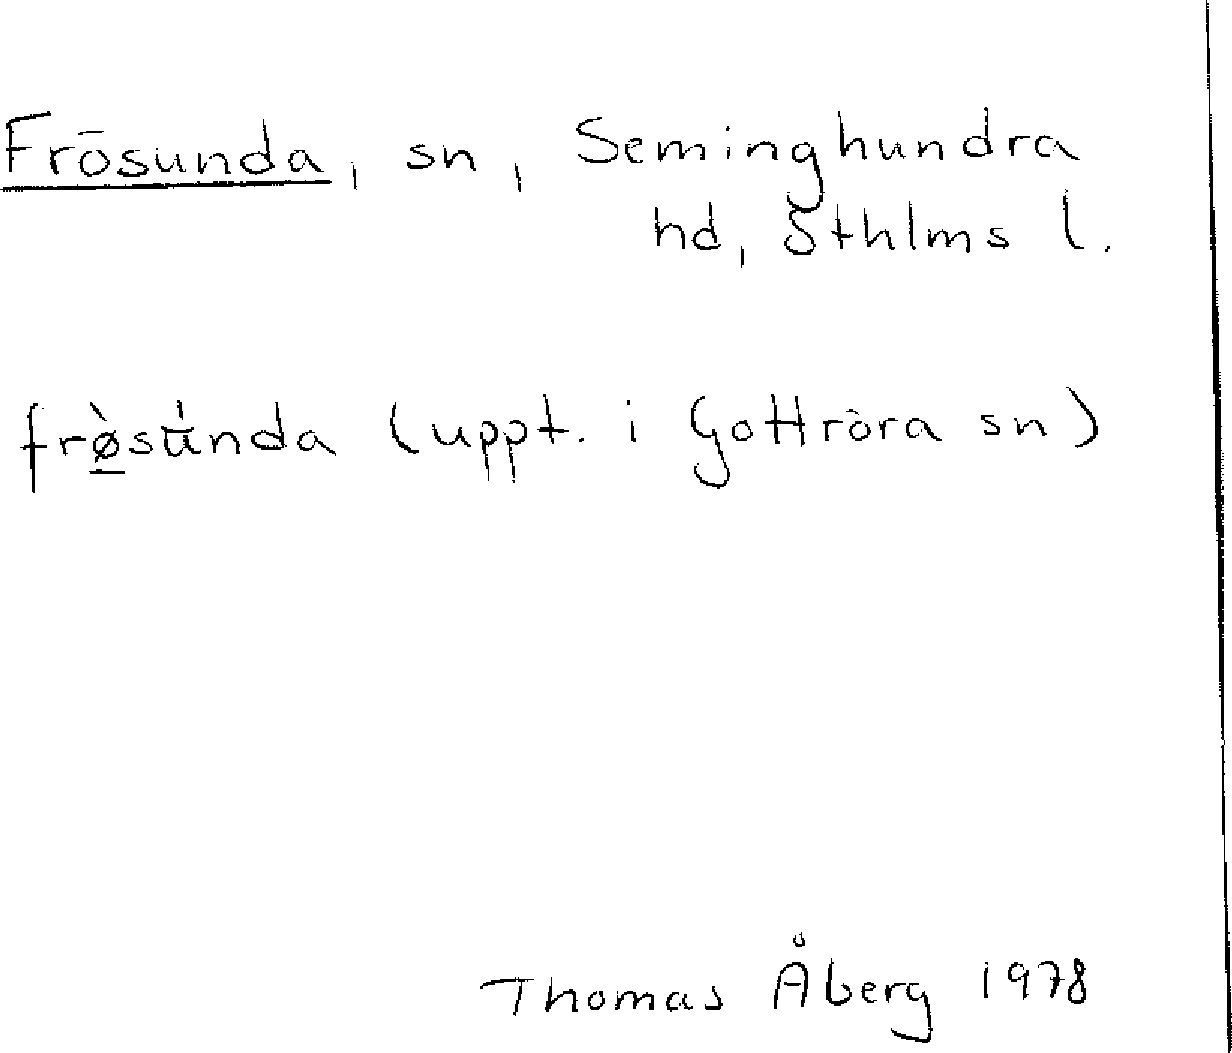 Frösunda, sn, Seminghundra
hd, Sthlms l.
frø̲̀sʉ́nda (uppt. i Gottröra sn)
Thomas Åberg 1978